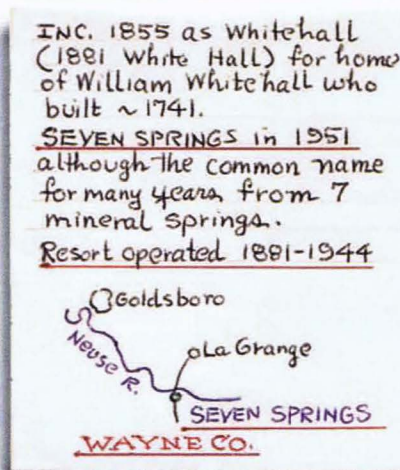 INC. 1855 as Whitehall
(1881 White Hall) for home
of William Whitehall who
built ~ 1741.
SEVEN SPRINGS in 1951
although the common name
for many years from 7
mineral springs.
Resort operated 1881-1944
Goldsboro
Neuse R.
La Grange
SEVEN SPRINGS
WAYNE CO.